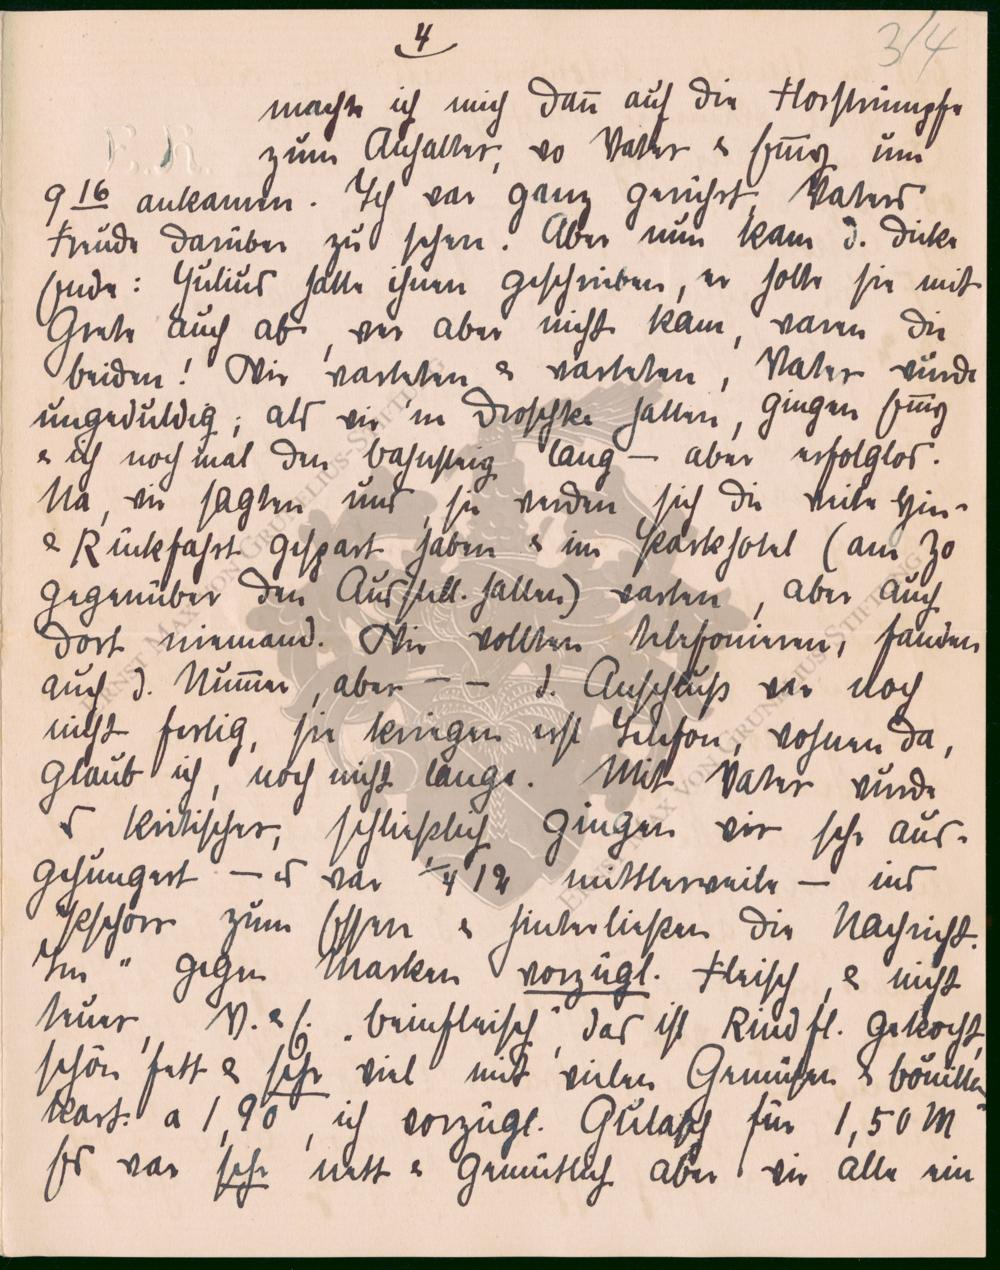 4
3/4
machte ich mich dan̄ auf die Florstrümpfe
F. K.
zum Anhalter, wo Vater & Em̄y um
9 16 ankamen. Ich war ganz gerührt, Vaters
Freude darüber zu sehen. Aber nun kam d. dicke
Ende: Julius hatte ihnen geschrieben, er holte sie mit
Grete auch ab, wer aber nicht kam, waren die
beiden! Wir warteten & warteten, Vater wurde
ungeduldig; als wir 'ne Droschke hatten, gingen Em̄y
& ich noch mal den Bahnsteig lang — aber erfolglos.
Na, wir sagten uns, sie werden sich die weite Hin-
& Rückfahrt gespart haben & im Parkhotel (am Zo
gegenüber den Ausstell. hallen) warten, aber auch
dort niemand. Wir wollten telefonieren, fanden
auch d. Num̄er, aber — — d. Anschluß war noch
nicht fertig, sie kriegen erst Telefon, wohnen da,
glaub ich, noch nicht lange. Mit Vater wurde
es kritischer, schließlich gingen wir sehr aus-
gehungert — es war 1/4 12 mittlerweile — ins
Pschorr zum Essen & hinterließen die Nachricht.
Im " gegen Marken vorzügl. Fleisch, & nicht
teuer, V. & E. „Beinfleisch", das ist Rindfl. gekocht,
schön fett & sehr viel mit vielen Gemüsen & Bouillon
kart. a 1,90, ich vorzügl. Gulasch für 1,50 M
Es war sehr nett & gemütlich aber wir alle ein
ERNST MAX VON GRUNELIUS-STIFTUNG
ERNST MAX VON GRUNELIUS-STIFTUNG